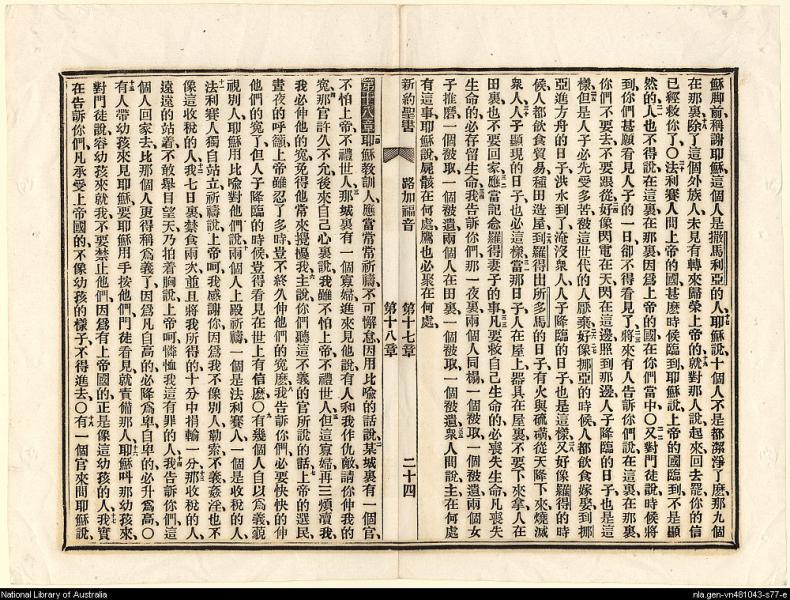 穌脚前稱謝耶穌、這個人是撒馬利亞的人、耶穌說、十個人不是都潔淨了麽、那九個
在那裏、除了這個外族人、未見有轉來歸榮上帝的、就對那人說、起來回去罷、你的信
已經救你了○法利賽人問上帝的國甚麽時候臨到、耶穌說、上帝的國臨到、不是顯
然的、人也不得說、在這裏、在那裏、因爲上帝的國在你們當中○又對門徒說、時候將
到、你們甚願看見人子的一日、却不得看見了、將來有人告訴你們說、在這裏、在那裏、
你們不要去、不要跟從、好像閃電在天閃在這邊照到那邊、人子降臨的日子也是這
樣、但是人子必先受多苦、被這世代的人厭棄、好像挪亞的時候、人都飲食嫁娶、到挪
亞進方舟的日子、洪水到了、淹沒衆人、人子降臨的日子也是這樣、又好像羅得的時
候、人都飲食貿易種田造屋、到羅得出所多馬的日子、有火與硫磺從天降下來燒滅
衆人、人子顯現的日子也必這樣、當那日子、人在屋上、器具在屋裏、不要下來拿、人在
田裏、也不要回家、應當記念羅得妻子的事、凡要救自己生命的、必喪失生命、凡喪失
生命的、必存留生命、我告訴你們、那一夜裏、兩個人同榻、一個被取、一個被遺、兩個女
子推磨、一個被取、一個被遺、兩個人在田裏、一個被取、一個被遺、衆人問說、主在何處
有這事、耶穌說、屍骸在何處、鷹也必聚在何處、
新約聖書 路加福音 第十七章 第十八章 二十四
第十八章耶穌教訓人應當常常祈禱、不可懈怠、因用比喻的話說、某城裏有一個官、
不怕上帝、不禮世人、那城裏有一個寡婦、進來見他說、有人和我作仇敵、請你伸我的
寃、那官許久不允、後來自己心裏說、我雖不怕上帝、不禮世人、但這寡婦再三煩瀆我、
我必伸他的寃、免得他常來攪擾我、主說、你們聽這不義的官所說的話、上帝的選民、
晝夜的呼籲上帝、雖忍了多時、豈不終久伸他們的寃麽、我告訴你們、必要快快的伸
他們的寃了、但人子降臨的時候、豈得看見在世上有信麽○有幾個人自以爲義、藐
視別人、耶穌用比喻對他們說、兩個人上殿祈禱、一個是法利賽人、一個是收稅的人、
法利賽人獨自站立祈禱說、上帝呵、我感謝你、因爲我不像別人、勒索不義姦淫、也不
像這收稅的人、我七日裏禁食兩次、並且將我所得的十分中捐輸一分、那收稅的人、
遠遠的站着、不敢舉目望天、乃拍着胸說、上帝呵、憐恤我這有罪的人、我告訴你們、這
個人回家去、比那個人更得稱爲義了、因爲凡自高的必降爲卑、自卑的必升爲高○
有人帶幼孩來見耶穌、要耶穌用手按他們、門徒看見、就責備那人、耶穌呌那幼孩來、
對門徒說、容幼孩來就我、不要禁止他們、因爲有上帝國的、正是像這幼孩的人、我實
在告訴你們、凡承受上帝國的、不像幼孩的樣子、不得進去○有一個官來問耶穌說、
National Library of Australia
nla.gen-vn481043-s77-e